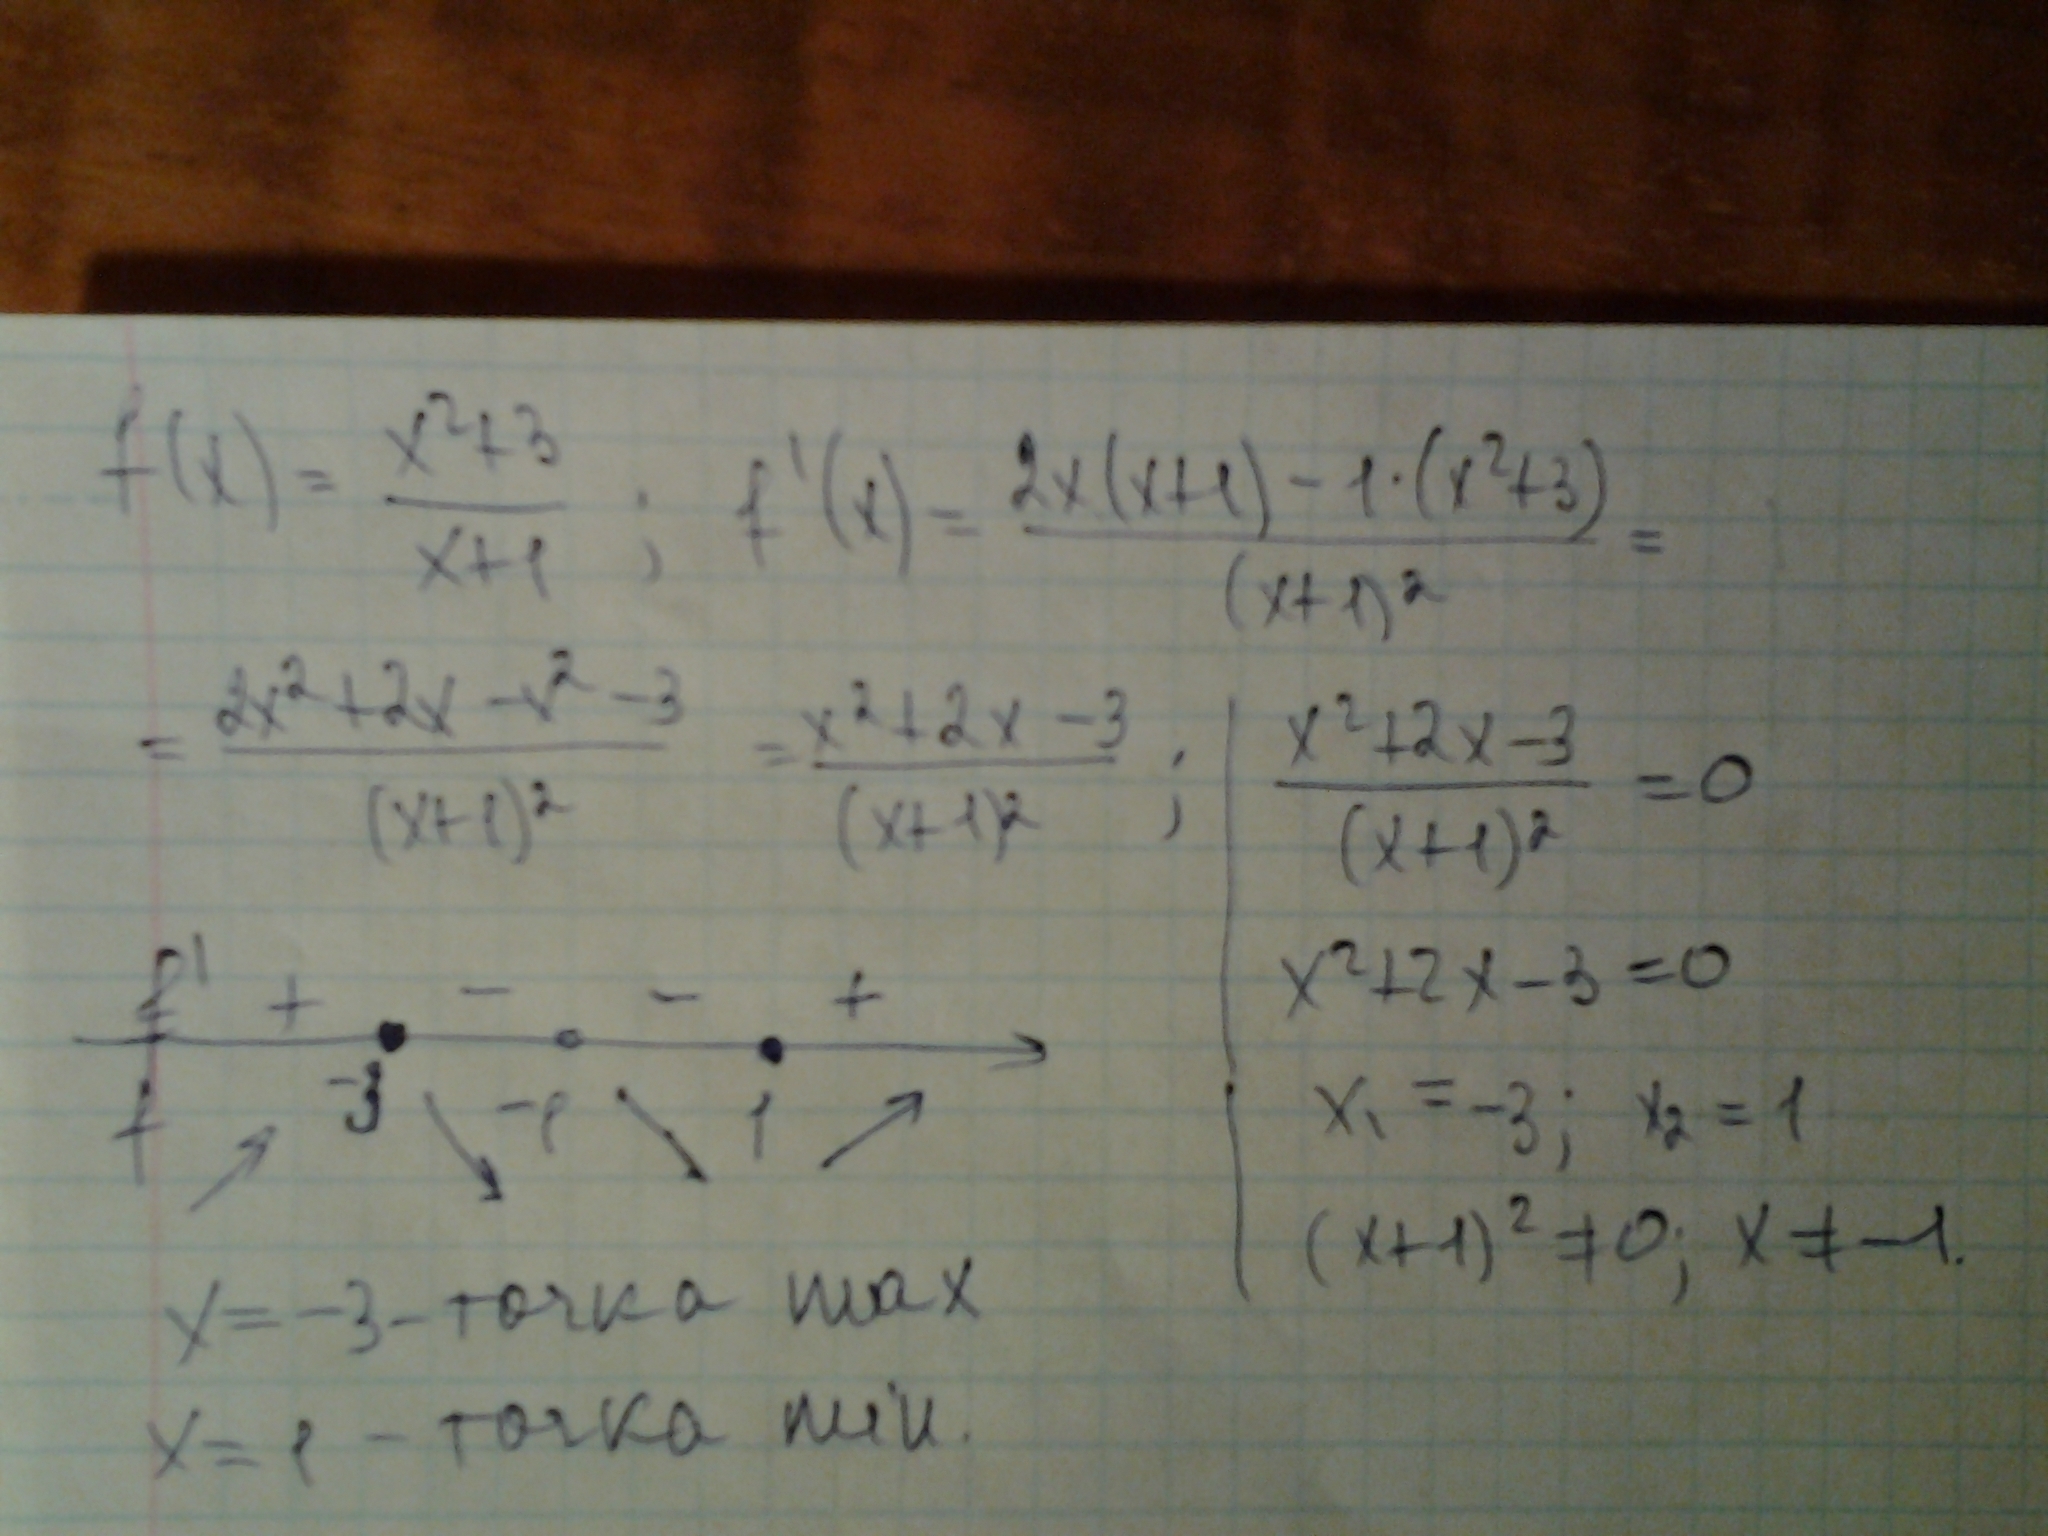 f(x) = (x²+3)/(x+1) ; f'(x) = (2x(x+1) - 1·(x²+3))/(x+1)² =
= (2x²+2x-x²-3)/(x+1)² = (x²+2x-3)/(x+1)² ;
(x²+2x-3)/(x+1)² = 0
x²+2x-3=0
x₁ = -3; x₂ = 1
(x+1)² ≠ 0; x ≠ -1.
f' + - - +
-3 -1 1
f ↗ ↘ ↘ ↗
x = -3 - точка max
x = 1 - точка min.